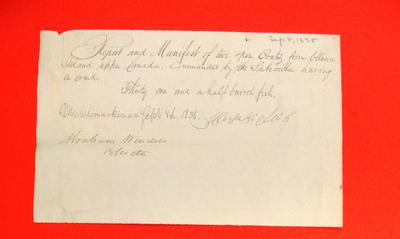 Sept 8, 1835
Report and Manifest of two open Boats from
Island upper Canada. Commanded by the having
on board.
Thirty one and a half barrels fish.
Michilimackinac Sept 8th 1835.
Abraham Wendell
Collector